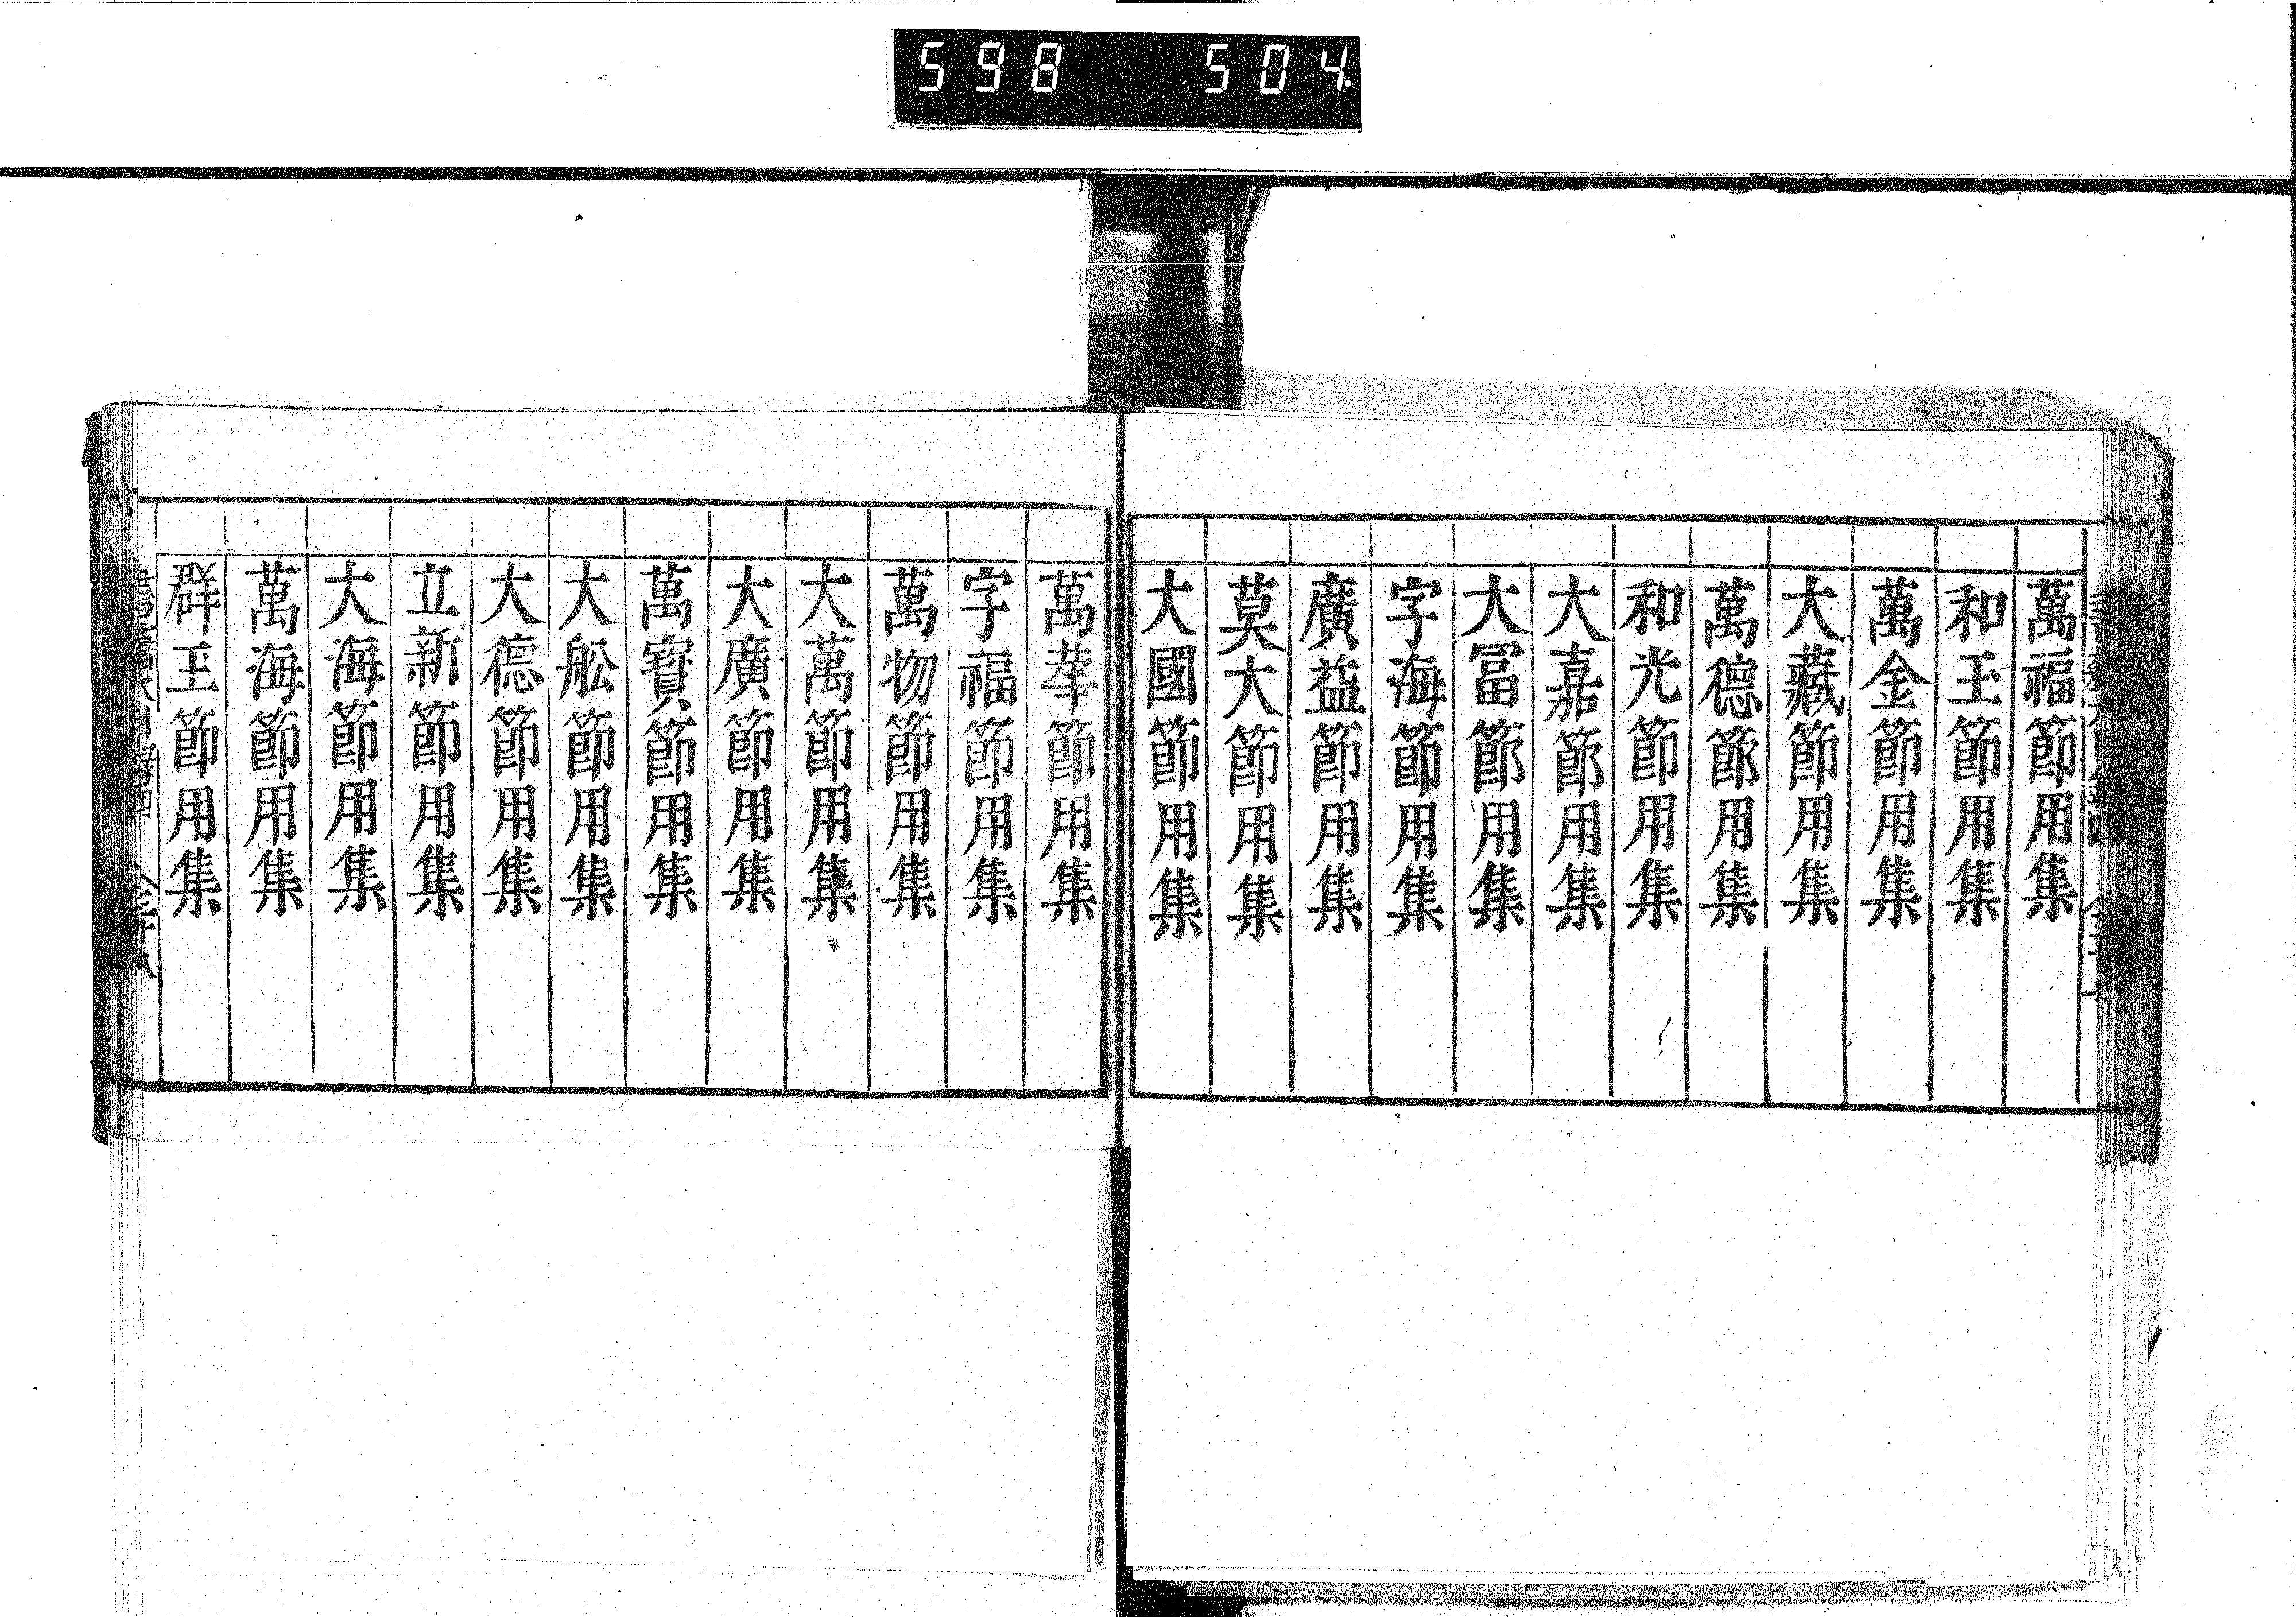 598 504
萬福節用集
和玉節用集
萬金節用集
大藏節用集
萬德節用集
和光節用集
大嘉節用集
大冨節用集
字海節用集
廣益節用集
莫大節用集
大國節用集
萬莘節用集
字福節用集
萬物節用集
大萬節用集
大廣節用集
萬寳節用集
大舩節用集
大德節用集
立新節用集
大海節用集
萬海節用集
群玉節用集